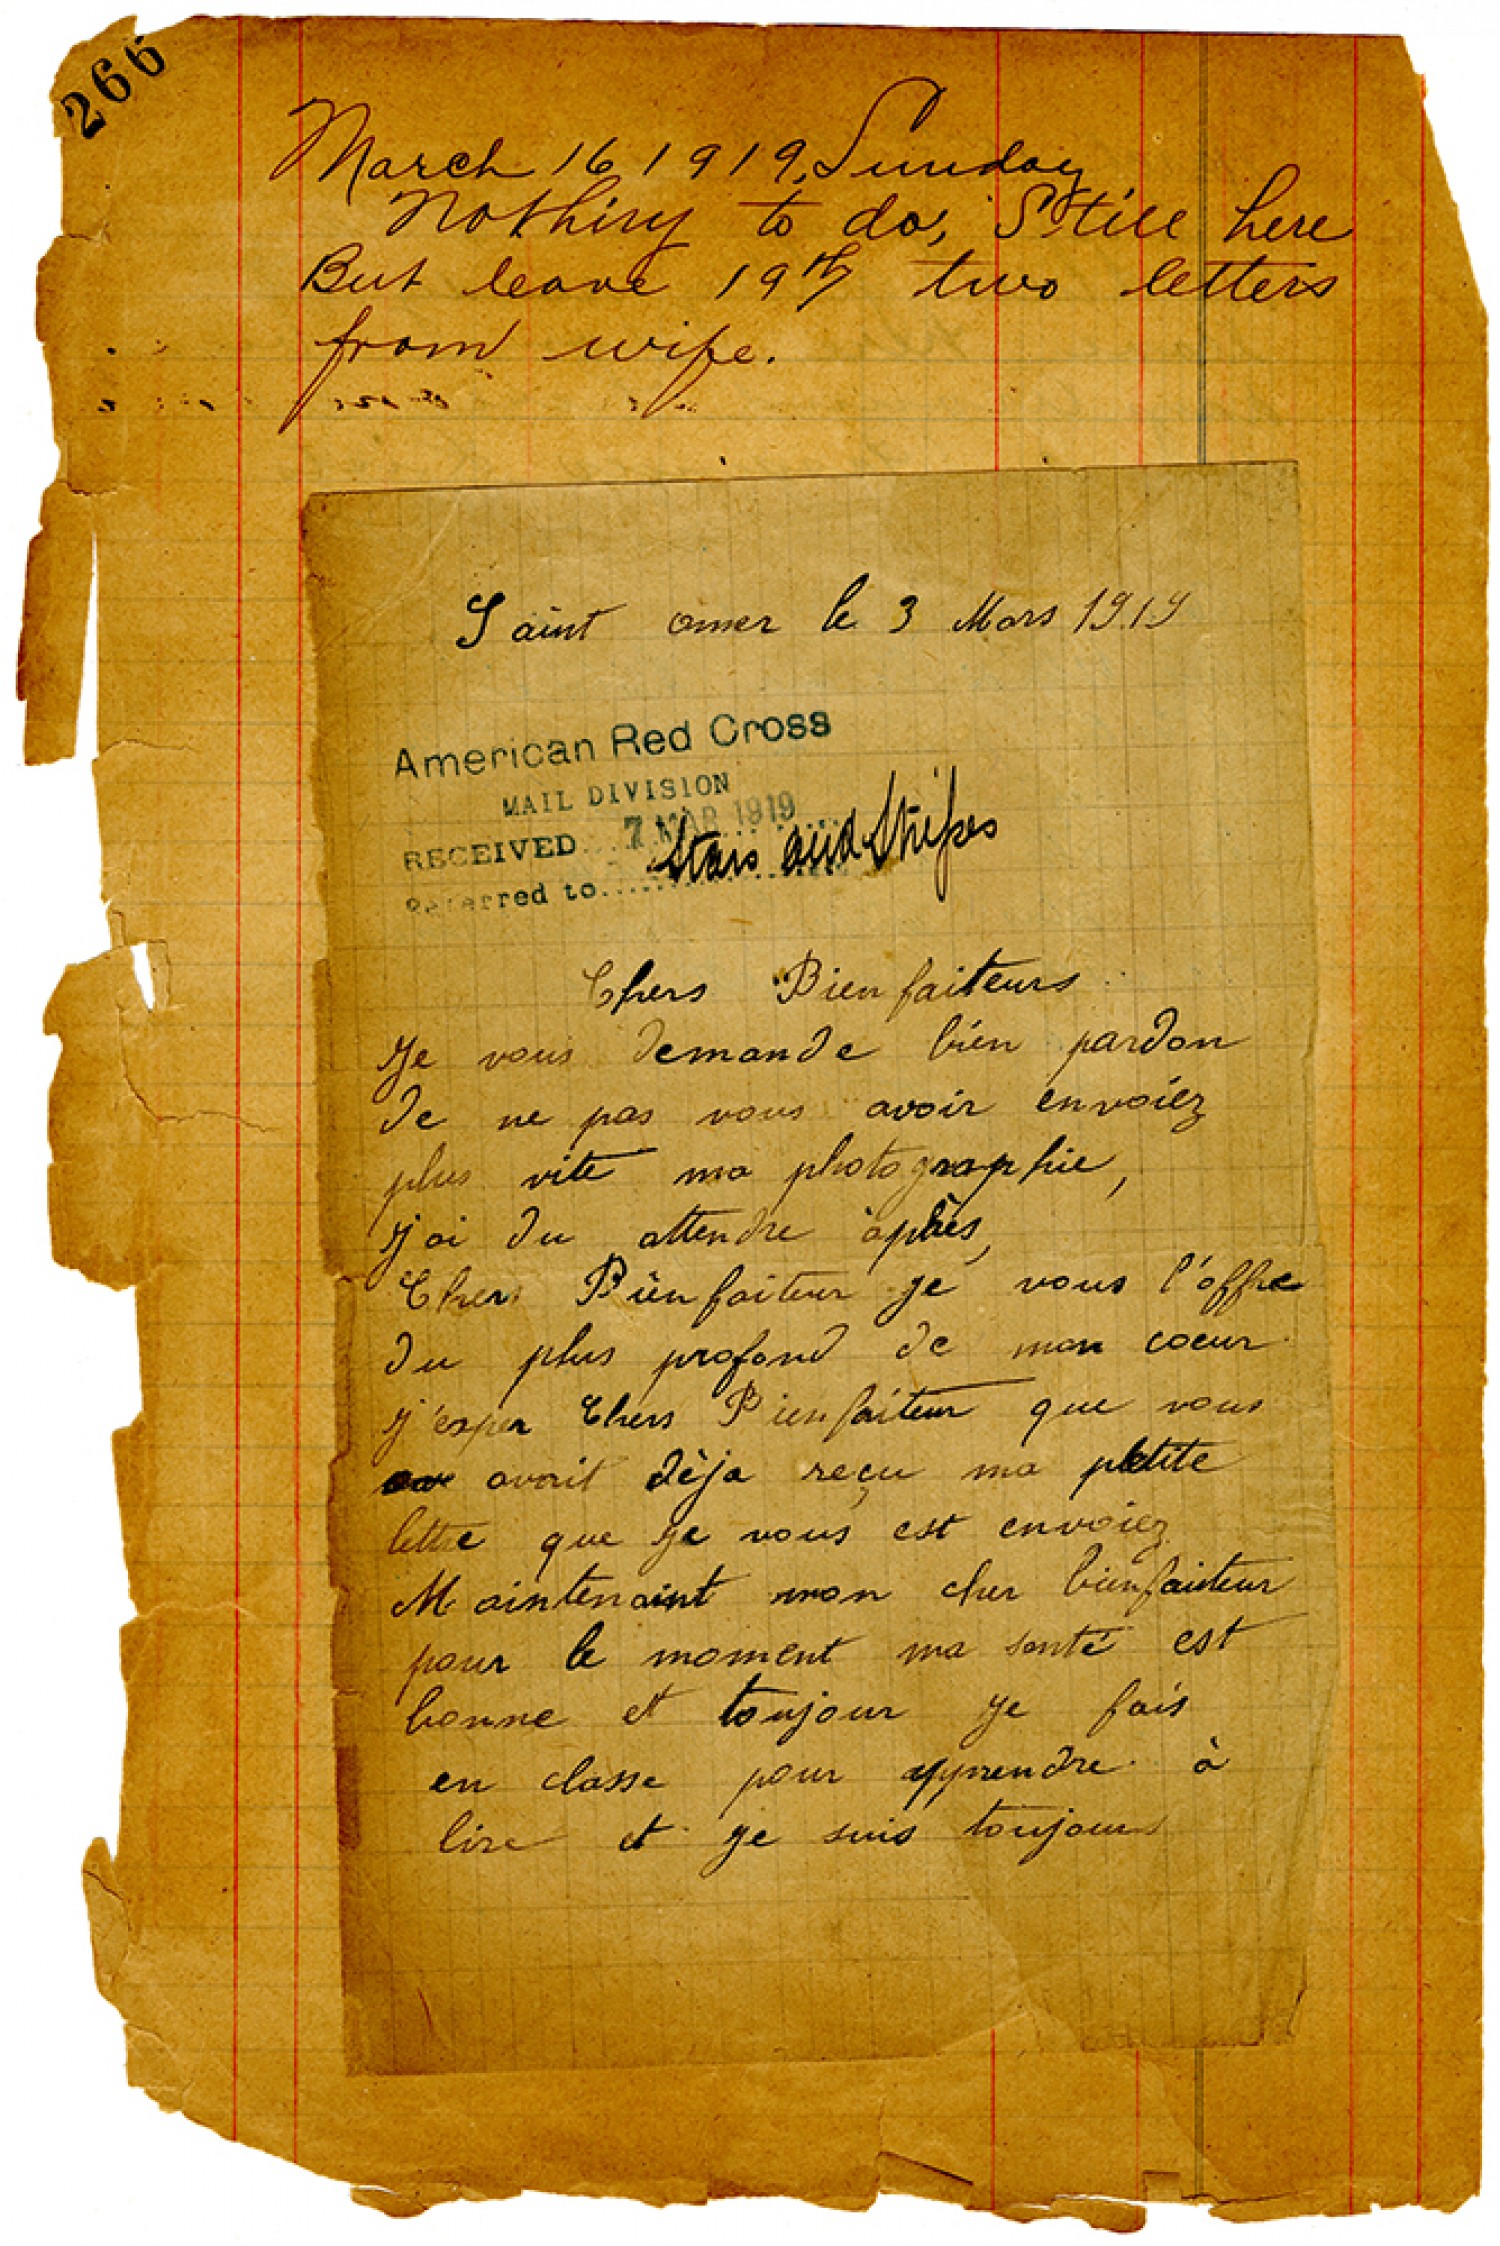 266
March 16 1919, Sunday
Nothing to do, Still here
But leave 19th two letters
from wife.
Saint omer le 3 Mars 1919
American Red Cross
MAIL DIVISION
RECEIVED 7 MAR 1919
Referred to Stars and Stripes
Chers Bienfaiteurs
Je vous demande bien pardon
de ne pas vous avoir envoiéz
plus vite ma photographie,
j'ai du attendre après,
Chers Bienfaiteur je vous l'offre
du plus profond de mon coeur
j'esper Chers Bienfaiteur que vous
avait dèja reçu ma petite
lettre que je vous est envoiez
Maintenaint mon cher bienfaiteur
pour le moment ma santé est
bonne et toujour je fais
en classe pour apprendre à
lire et je suis toujours